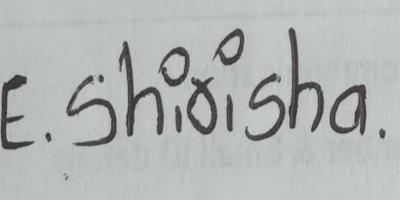 E. Shirisha.